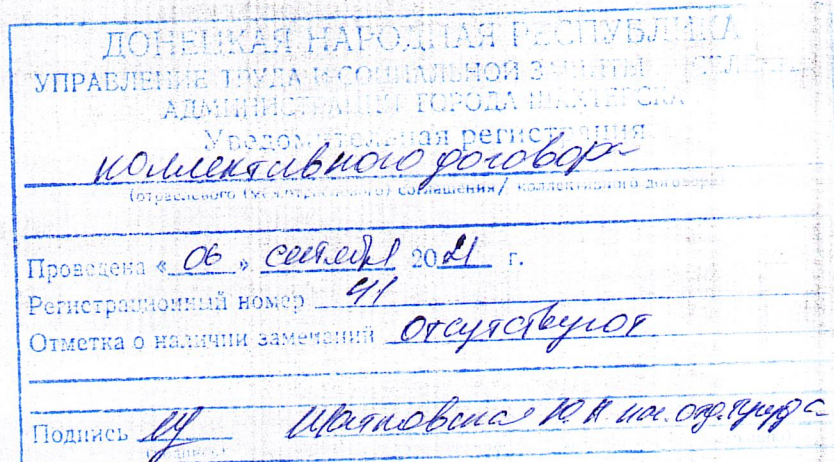 ДОНЕЦКАЯ НАРОДНАЯ РЕСПУБЛИКА
УПРАВЛЕНИЕ ТРУДА И СОЦИАЛЬНОЙ ЗАЩИТЫ НАСЕЛЕНИЯ
АДМИНИСТРАЦИИ ГОРОДА ШАХТЕРСКА
Уведомительная регистрация
коллективного договора
(отраслевого (межотраслевого) соглашения/ коллективного договора)
Проведена « 06 » сентября 2021 г.
Регистрационный номер 41
Отметка о наличии замечаний отсутствуют
Подпись Шатковская Ю.Н. нач. отд. труда
(подпись)